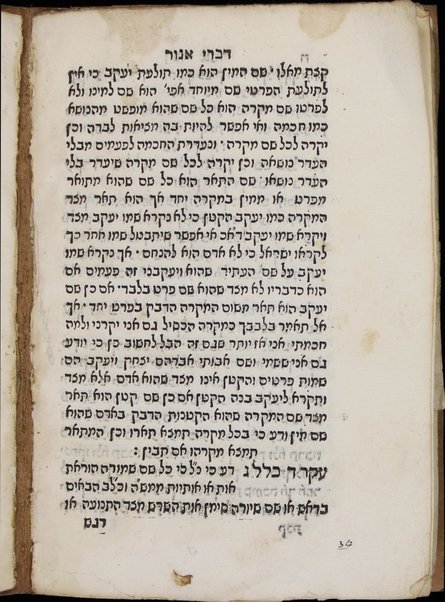 דברי אגור
קצת מאלו · שם המין הוא כמו תולעת יעקב כי אין
לתולעת הפרטי שם מיוחד אפי׳ הוא שם למינו ולא
לפרטו שם מקרה הוא כל שם שהוא מופשט מהנושא
כמו חכמה ואי אפשר להיות בה מציאות לבדה וכן
יקרה לכל שם מקרה · ונעדרת החכמה לפעמים מבלי
העדר נושאה וכן יקרה לכל שם מקרה שיעדר בלי
העדר נושאו · שם התאר הוא כל שם שהוא מתואר
מפרט או ממין במקרה יחד אך הוא תאר מצד
המקרה כמו יעקב הקטן כי לא נקרא שמו יעקב מצד
ויקרא שמו יעקב דא״כ אי אפשר שיתבטל שמו אחר כך
לקראו ישראל כי לא אדם הוא להנחם · אך נקרא שמו
יעקב על שם העתיד שהוא ויעקבני זה פעמים אם
הוא כדבריו לא מצד שהוא שם פרט בלבד · אם כן שם
יעקב הוא תאר משום המקרה הדבק בפרט יחד · אך
אל תאמר בלבבך כמקרה הכסיל גם אני יקרני ולמה
חכמתי אני אז יותר שגם זה הבל לחשוב כן כי יודע
גם אני ששמי ושם אבותי אברהם יצחק ויעקב הם
שמות פרטים והקטן אינו מצד שהוא אדם אלא מצד
ותקרא ליעקב בנה הקטן אם כן שם קטן הוא תאר
מצד שם המקרה שהוא הקטנות הדבק באדם שהוא
שם מין ודע כי בכל מקרה תמצא תארו וכן המתאר
תמצא מקרהו אם תבין :
עקרך כללג דע כי כ״ל סי כל שם שמורה הוראת
אות או אותיות ממש״ה וכ״לב הבאים
בראש או שם שיורה סימן אות השרש מצד התנועה או
דגש